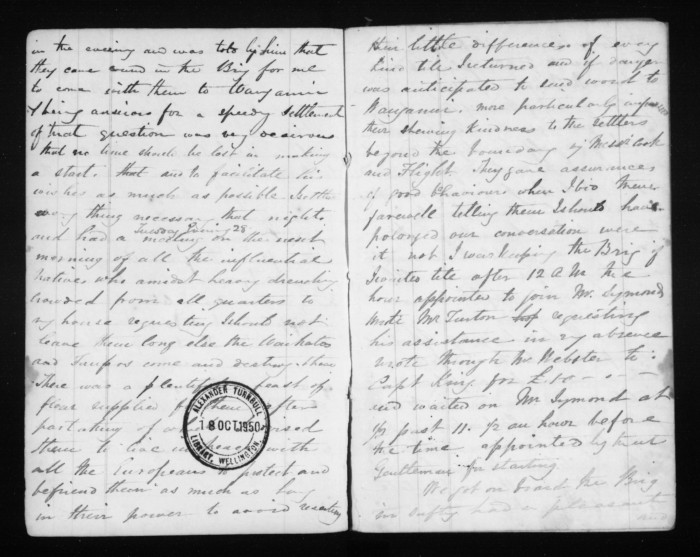 in the evening and was told by him that
they came round in the Brig for me
to come with them to Wanganui
& being anxious for a speedy settlement
of that question was very desirous
that no time should be lost in making
a start. that and to facilitate his
wishes as much as possible I
every thing necessary that night
Tuesday Evening 28
and had a meeting on the next
morning of all the influential
natives who amidst heavy drenching
crowded from all quarters to
my house requesting I should not
leave them long else the Waikatos
and Taupos come and destroy them
There was a plentiful feast of
flour supplied them after
partaking of
them to live in peace with
all the Europeans to protect and
befriend them as much as lay
in their power to avoid
ALEXANDER TURNBULL
18 OCT 1950
LIBRARY, WELLINGTON.
their little differences of every
kind till I returned and if danger
was anticipated to send word to
Wanganui. more particularly
their shewing kindness to the settlers
beyond the boundary by Messrs Cook
and Flight. They gave assurances
of good behaviour when I bid them
farewell telling them I should have
prolonged our conversation were
it not I was keeping the Brig if
I waited till after 12 A M the
hour appointed to join Mr. Symonds
wrote Mr Turton requesting
his assistance in my absence
wrote through Mr Webster to
Capt King for
and waited on Mr Symond at
½ past 11. ½ an hour before
the time appointed by that
Gentleman for starting.
We got on board the Brig
in safety had a pleasant
and